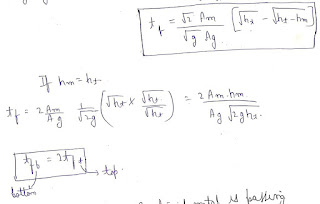 t_f = √2 Am / √g Ag [√ht - √ht-hm]
If hm = ht
tf = 2 Am/Ag 1/√2g (√ht × √ht/√ht) = 2 Am. hm / Ag √2ght.
t_fb = 2t_ft → top
bottom
metal is passing